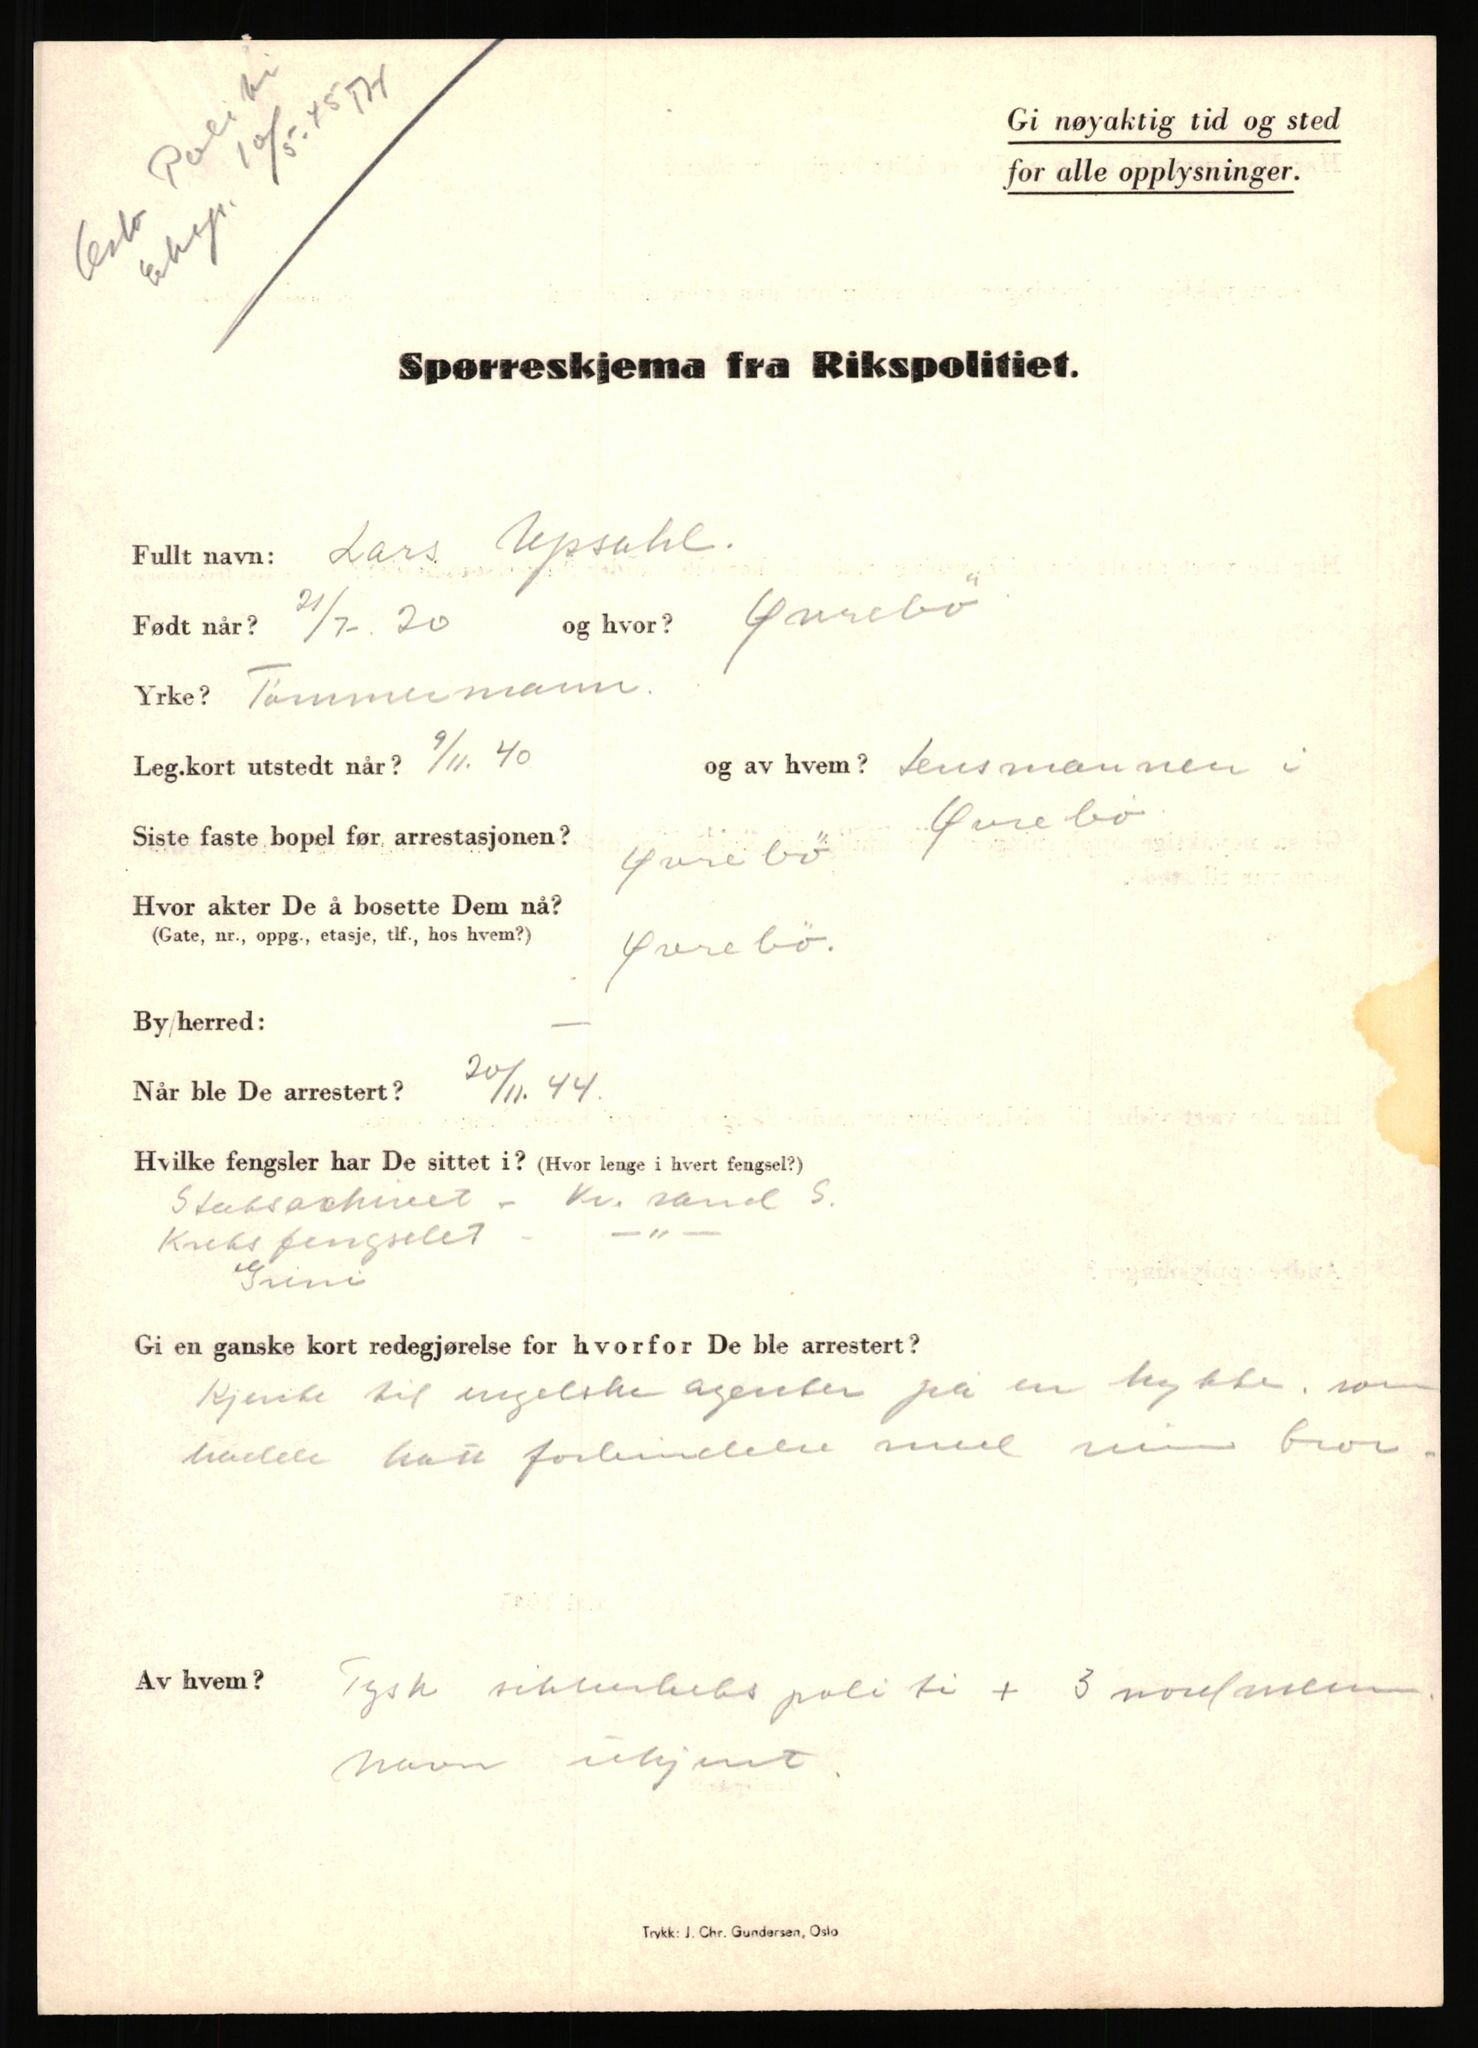 Oslo Politi
Eksp. 10/5-45 TH
Gi nøyaktig tid og sted
for alle opplysninger.
Spørreskjema fra Rikspolitiet.
Fullt navn: Lars Upsahl.
Født når? 21/7-20 og hvor? Øvrebö
Yrke? Tömmermann.
Leg.kort utstedt når? 9/11.40 og av hvem? Lensmannen i
Øvrebö
Siste faste bopel før arrestasjonen? Øvrebö
Hvor akter De å bosette Dem nå?
(Gate, nr., oppg., etasje, tlf., hos hvem?) Øvrebö.
By/herred: —
Når ble De arrestert? 20/11.44.
Hvilke fengsler har De sittet i? (Hvor lenge i hvert fengsel?)
Statsarkivet - Kr. sand S.
Kretsfengselet - —"—
Grini
Gi en ganske kort redegjørelse for hvorfor De ble arrestert?
Kjente til engelske agenter på en hytte, som
hadde hatt forbindelse med min bror.
Av hvem? Tysk sikkerhetspoliti + 3 nordmenn.
Navn ukjent.
Trykk: J. Chr. Gundersen, Oslo